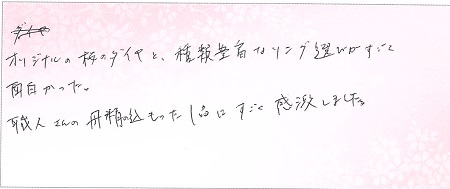 オリジナルの桜のダイヤと、種類豊富なリング選びがすごく
面白かった。
職人さんの丹精の込もった1品にすごく感激しました。